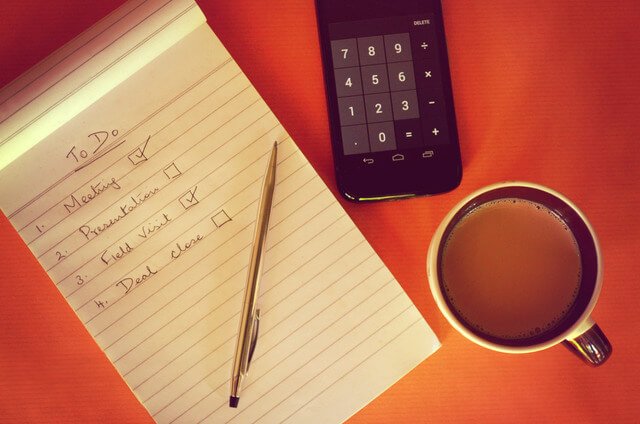 To Do
1. Meeting ☑
2. Presentation ☐
3. Field Visit ☑
4. Deal close ☐
DELETE
7 8 9 ÷
4 5 6 ×
1 2 3 −
. 0 = +